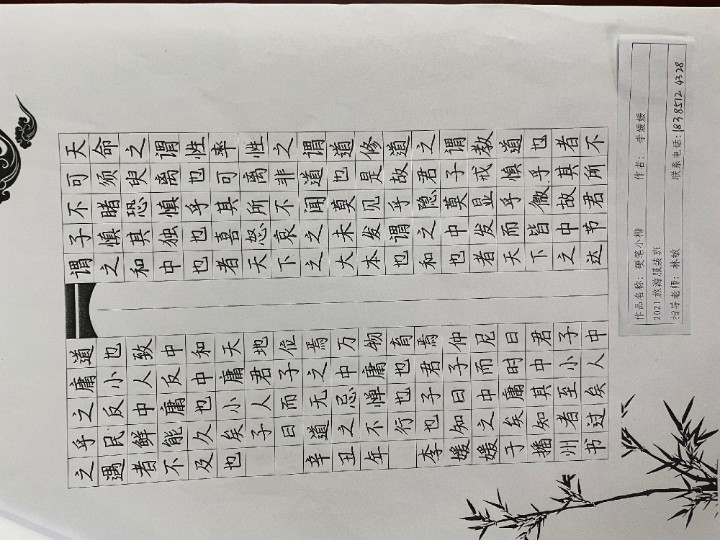 天命之谓性率性之谓道修道之谓教道也者不
可须臾离也可离非道也是故君子戒慎乎其所
不睹恐慎乎其所不闻莫见乎隐莫显乎微故君
子慎其独也喜怒哀之未发谓之中发而皆中节
谓之和中也者天下之大本也和也者天下之达
道也致中和天地位焉万物育焉仲尼曰君子中
庸小人反中庸君子之中庸也君子而时中小人
之反中庸也小人而无忌惮也子曰中庸其至矣
乎民鲜能久矣子曰道之不行也知之矣知者过
之遇者不及也 辛丑年 李媛媛于播州书
作品名称：硬笔小楷 作者：李媛媛
2021旅游服装班
指导老师：林敏 联系电话：18385124328